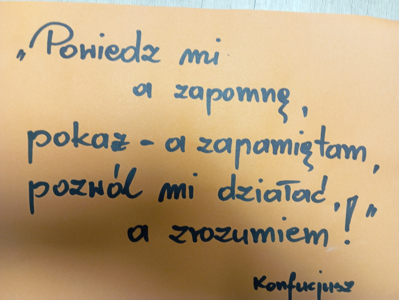 „Powiedz mi
a zapomnę,
pokaż - a zapamiętam,
pozwól mi działać,
a zrozumiem!”
Konfucjusz